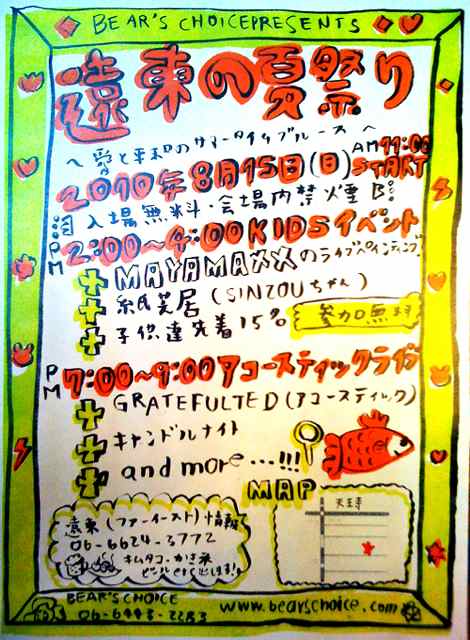 BEAR'S CHOICE PRESENTS
遠東の夏祭り
〜愛と平和のサマータイムブルース〜
2010年8月15日(日)AM11:00 START
入場無料・会場内禁煙
PM 2:00〜4:00 KIDSイベント
MAYAMAXXのライブペインティング
紙芝居(SINZOUちゃん)
子供達先着15名 参加無料
PM 7:00〜9:00アコースティックライブ
GRATEFULTED(アコースティック)
キャンドルナイト
and more…!!!
MAP
天王寺
遠東(ファーイースト)情報
06-6624-3772
キムタコ・かき氷
ビールetc出します!
BEAR'S CHOICE
06-6443-2253
www.bearschoice.com